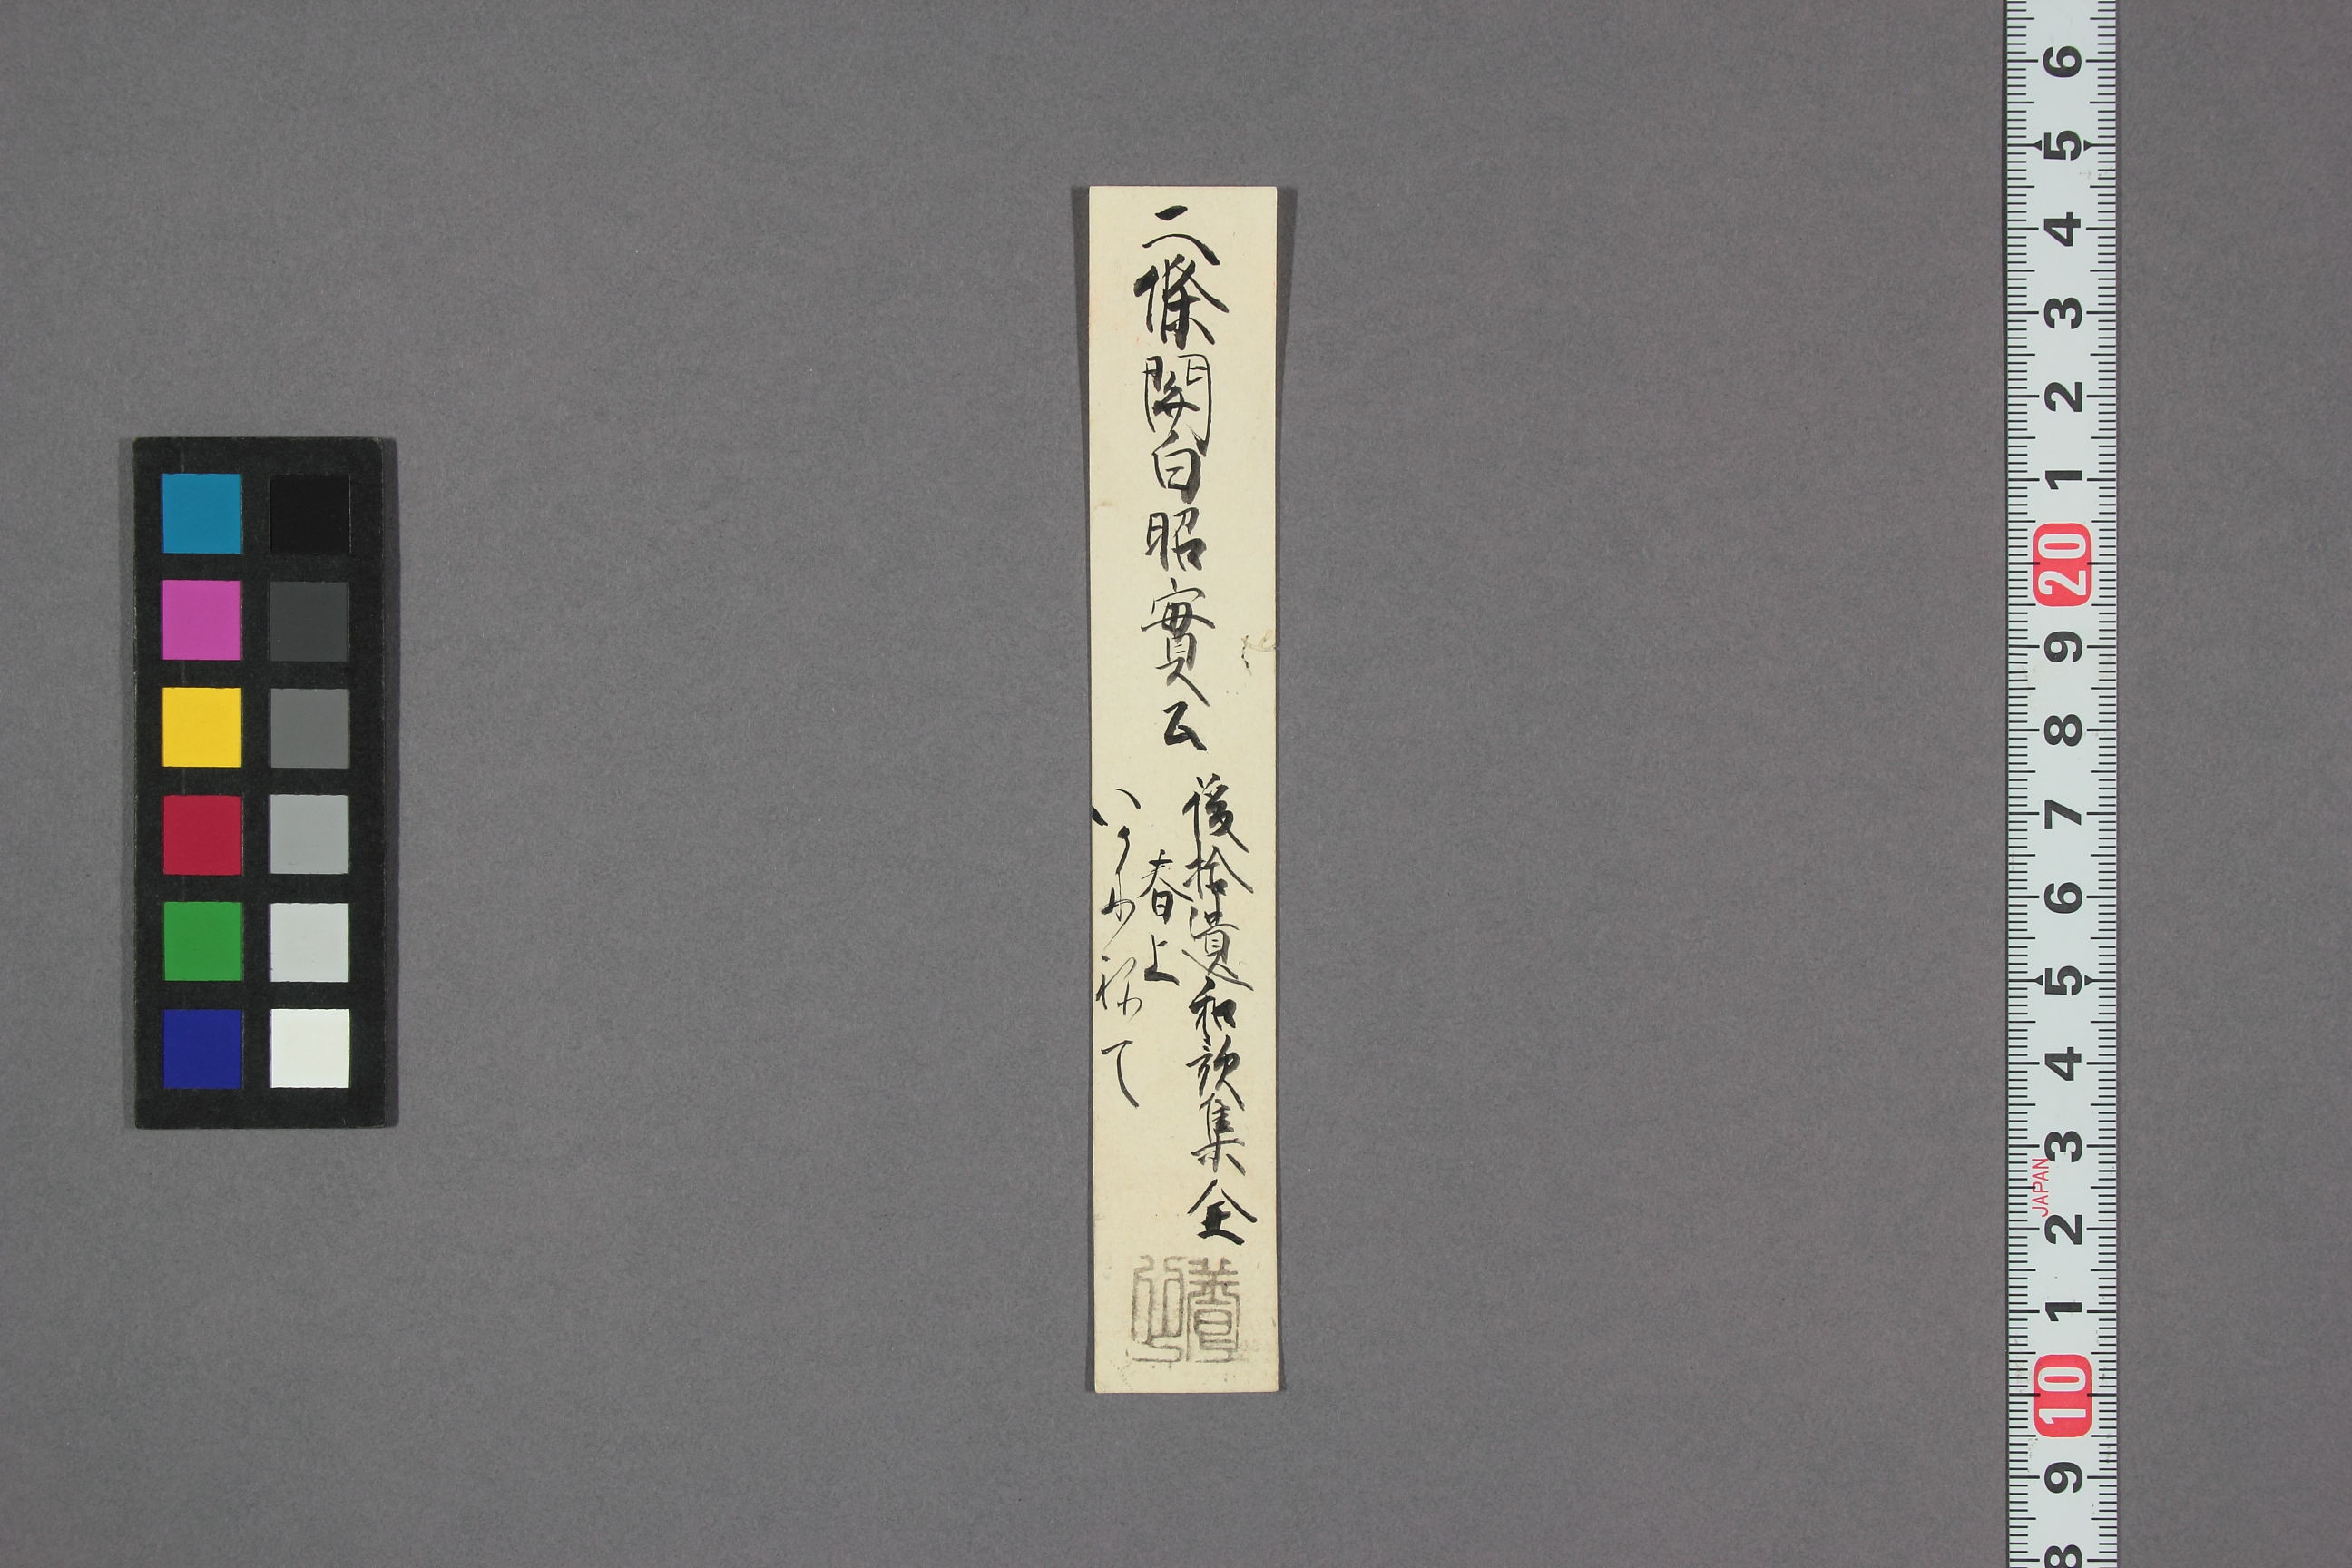 二條関白昭實公
後拾遺和歌集全
春上
いかにねて
6
5
4
3
2
1
20
9
8
7
6
5
4
3
JAPAN
2
1
10
9
8